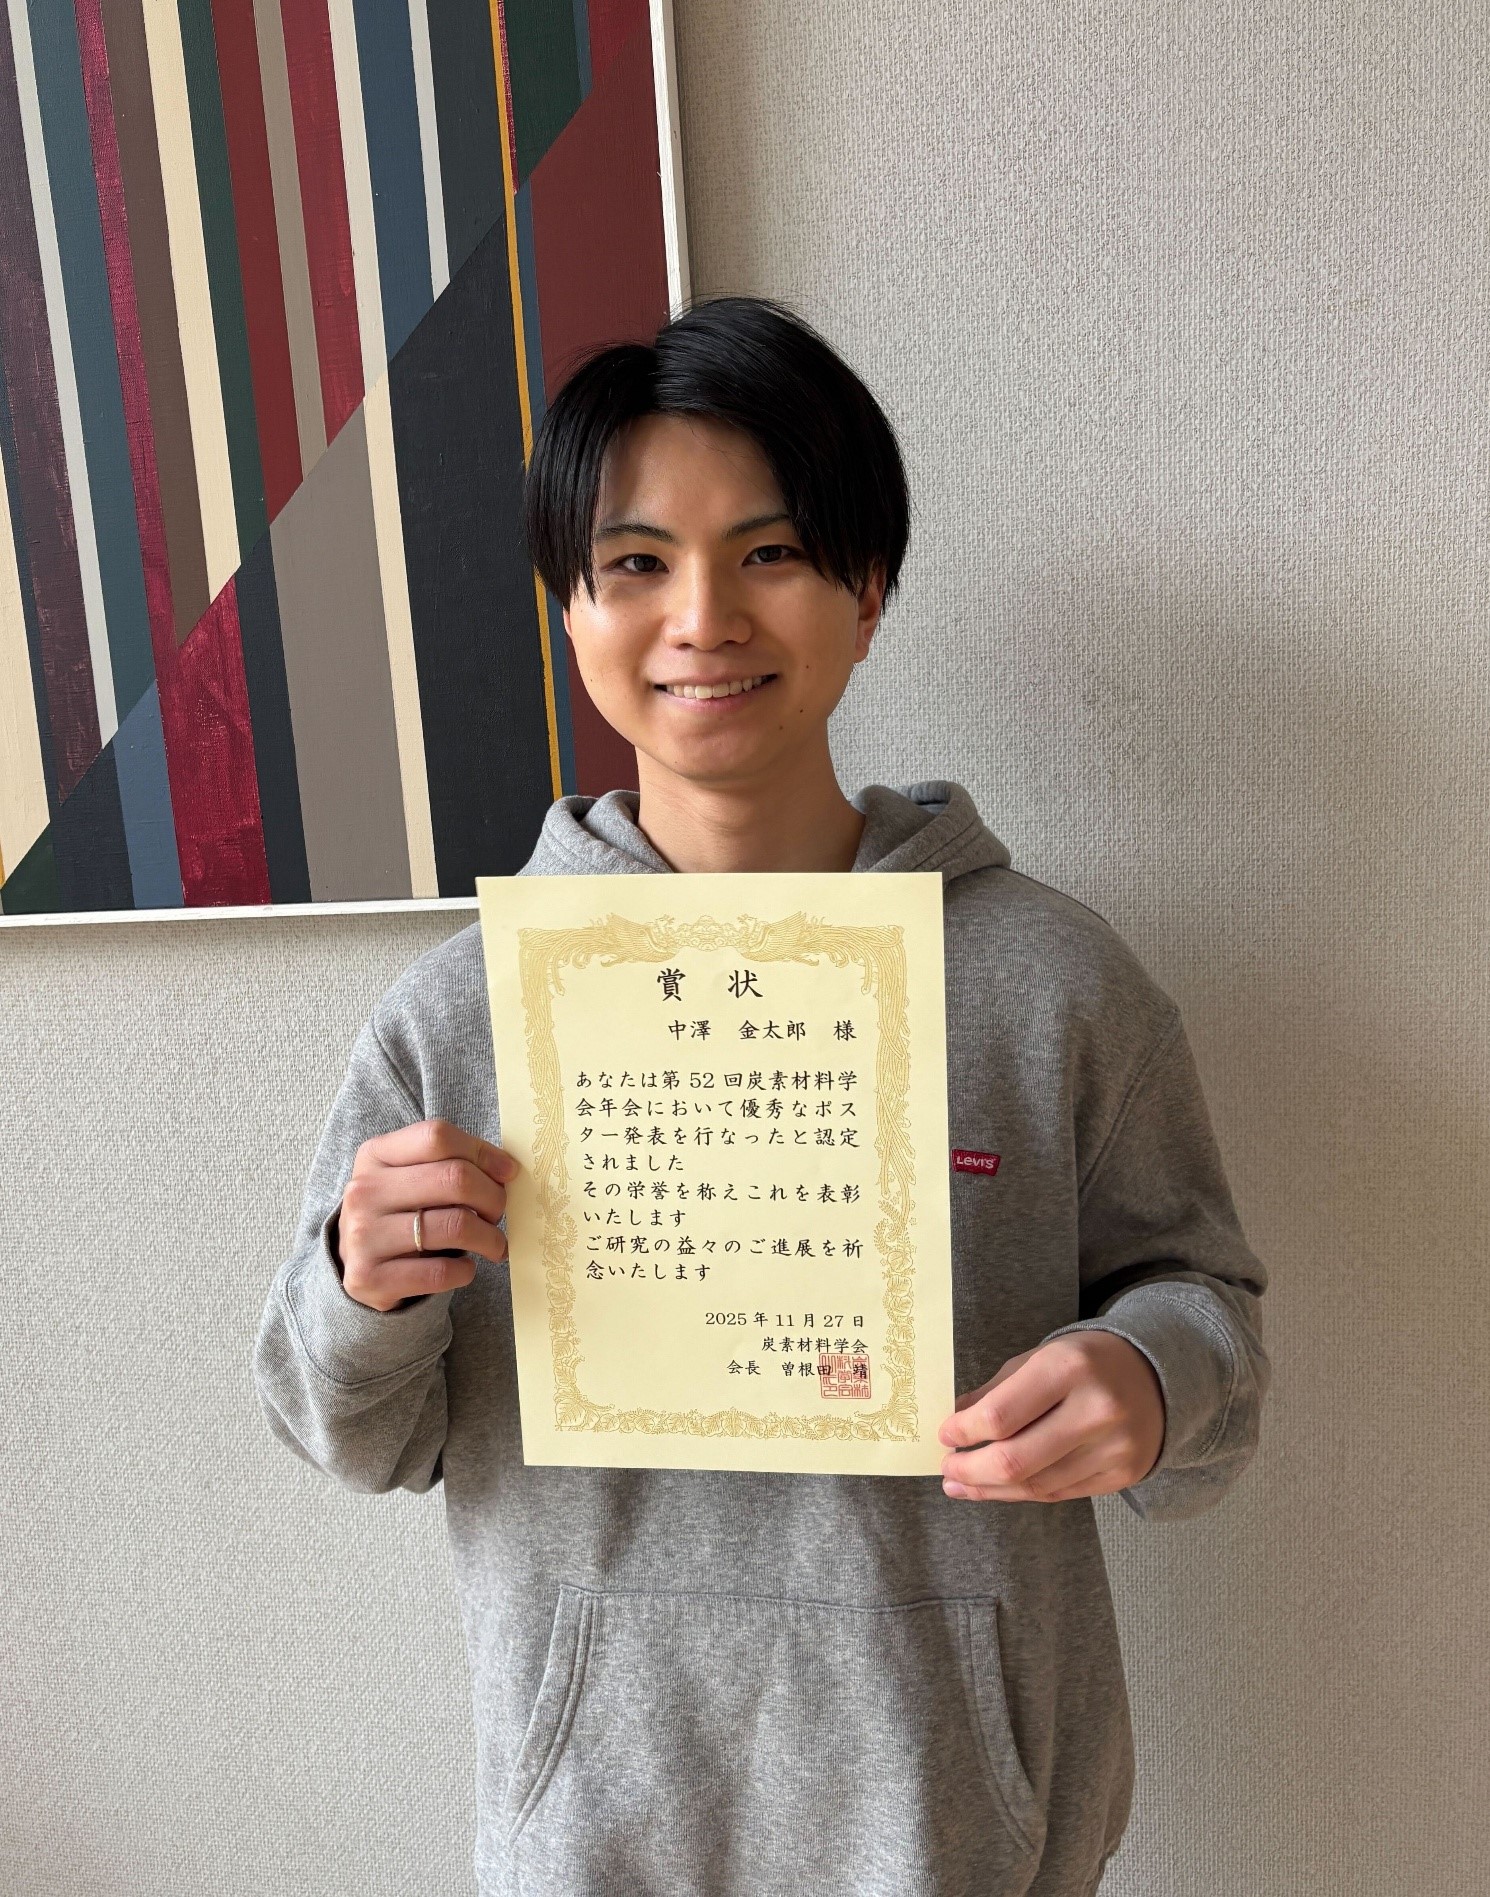 賞 状
中澤 金太郎 様
あなたは第 52 回炭素材料学
会年会において優秀なポス
ター発表を行なったと認定
されました
その栄誉を称えこれを表彰
いたします
ご研究の益々のご進展を祈
念いたします
2025 年 11 月 27 日
炭素材料学会
会長 曽根田 靖
Levi's